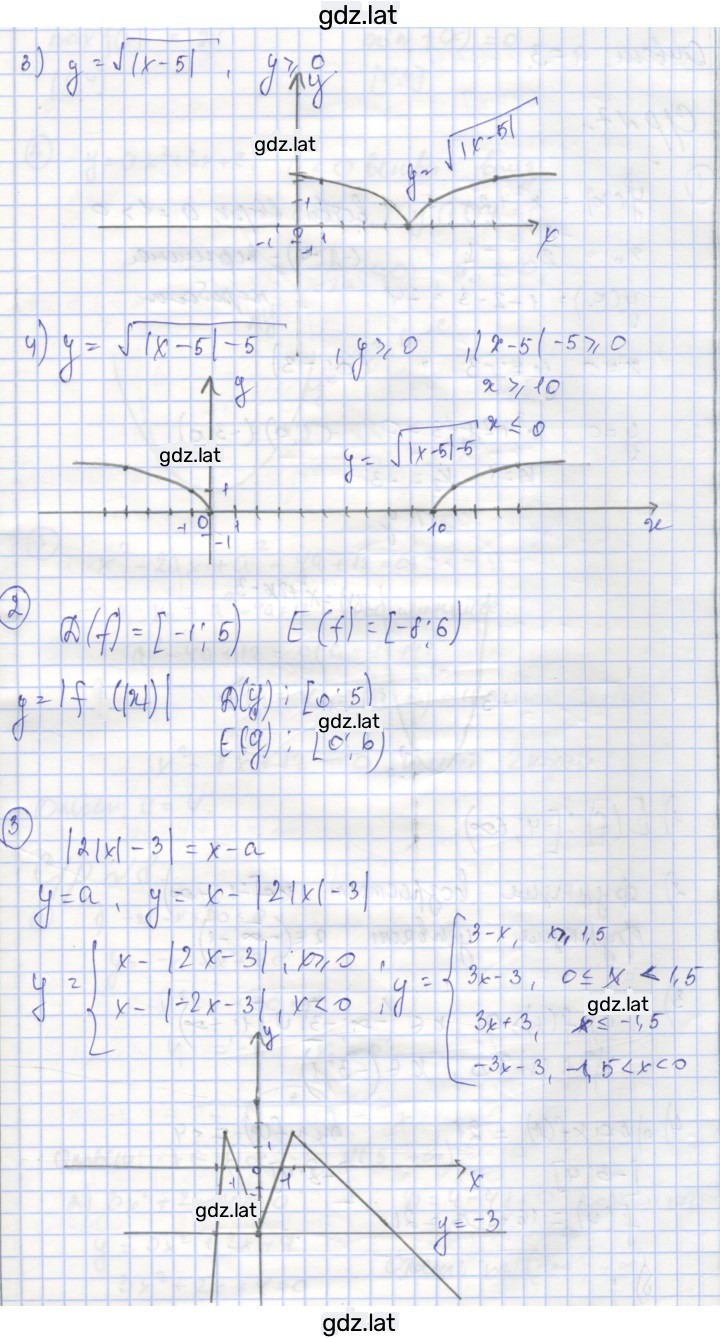 gdz.lat
3) y = √|x-5| , y ≥ 0
y
gdz.lat
y = √|x-5|
1
-1 0 1 x
-1
4) y = √|x-5|-5 , y ≥ 0 , |x-5|-5 ≥ 0
x ≥ 10
y
x ≤ 0
gdz.lat
y = √|x-5|-5
1
-1 0 1 10 x
-1
2
D(f) = [-1; 5) E(f) = [-8; 6)
y = |f(|x|)| D(y): [0; 5)
gdz.lat
E(y): [0; 6)
3
|2|x|-3| = x-a
y = a, y = x-|2|x|-3|
y = { x-|2x-3|, x ≥ 0 ; y = { 3-x, x ≥ 1,5
x-|-2x-3|, x < 0 3x-3, 0 ≤ x < 1,5
gdz.lat
3x+3, x ≤ -1,5
-3x-3, -1,5 < x < 0
y
1
-1 1 x
gdz.lat
y = -3
gdz.lat